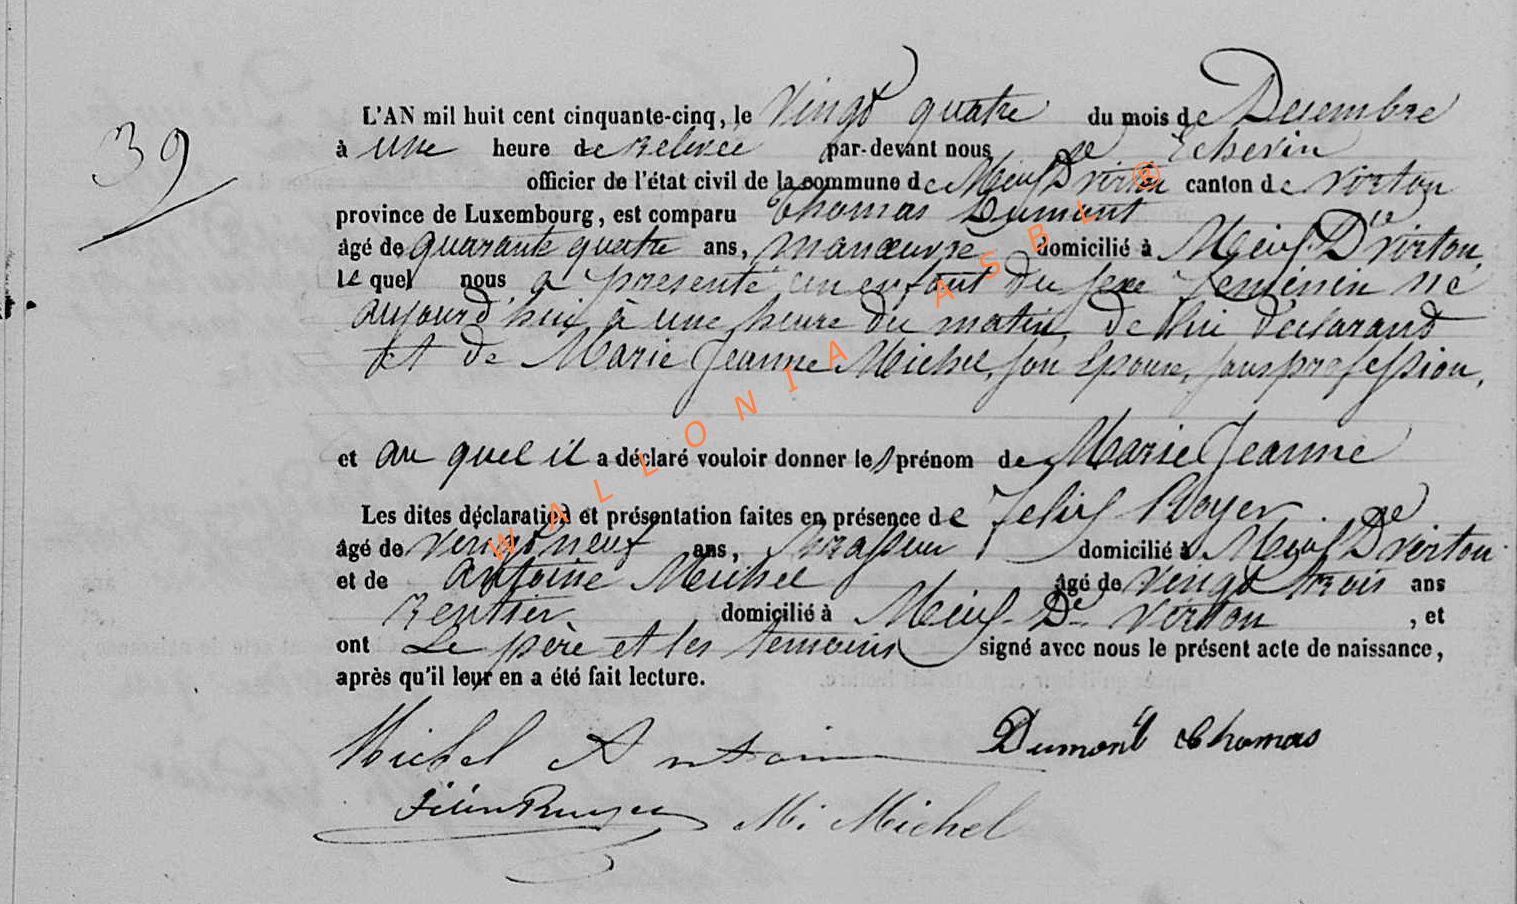 39
L'AN mil huit cent cinquante-cinq, le vingt quatre du mois de Decembre
à une heure de relevée par-devant nous Echevin
officier de l'état civil de la commune de Meix D virton canton de virton
province de Luxembourg, est comparu Thomas Dumont
âgé de quarante quatre ans, manœuvre domicilié à Meix D.t virton,
le quel nous a presenté un enfant du sexe feminin né
aujourd'hui à une heure du matin, de lui déclarand
et de Marie Jeanne Michel, son Epouse, sans profession,
et au quel il a déclaré vouloir donner les prénom de Marie Jeanne
Les dites déclaration et présentation faites en présence de Felix Royer
âgé de vingt neuf ans, brasseur domicilié à Meix De virton
et de Antoine Michel âgé de vingt trois ans
Rentier domicilié à Meix De virton , et
ont Le père et les temoins signé avec nous le présent acte de naissance,
après qu'il leur en a été fait lecture.
Michel Antoine Dumont Thomas
Michel
WALLONIA ASBL ®